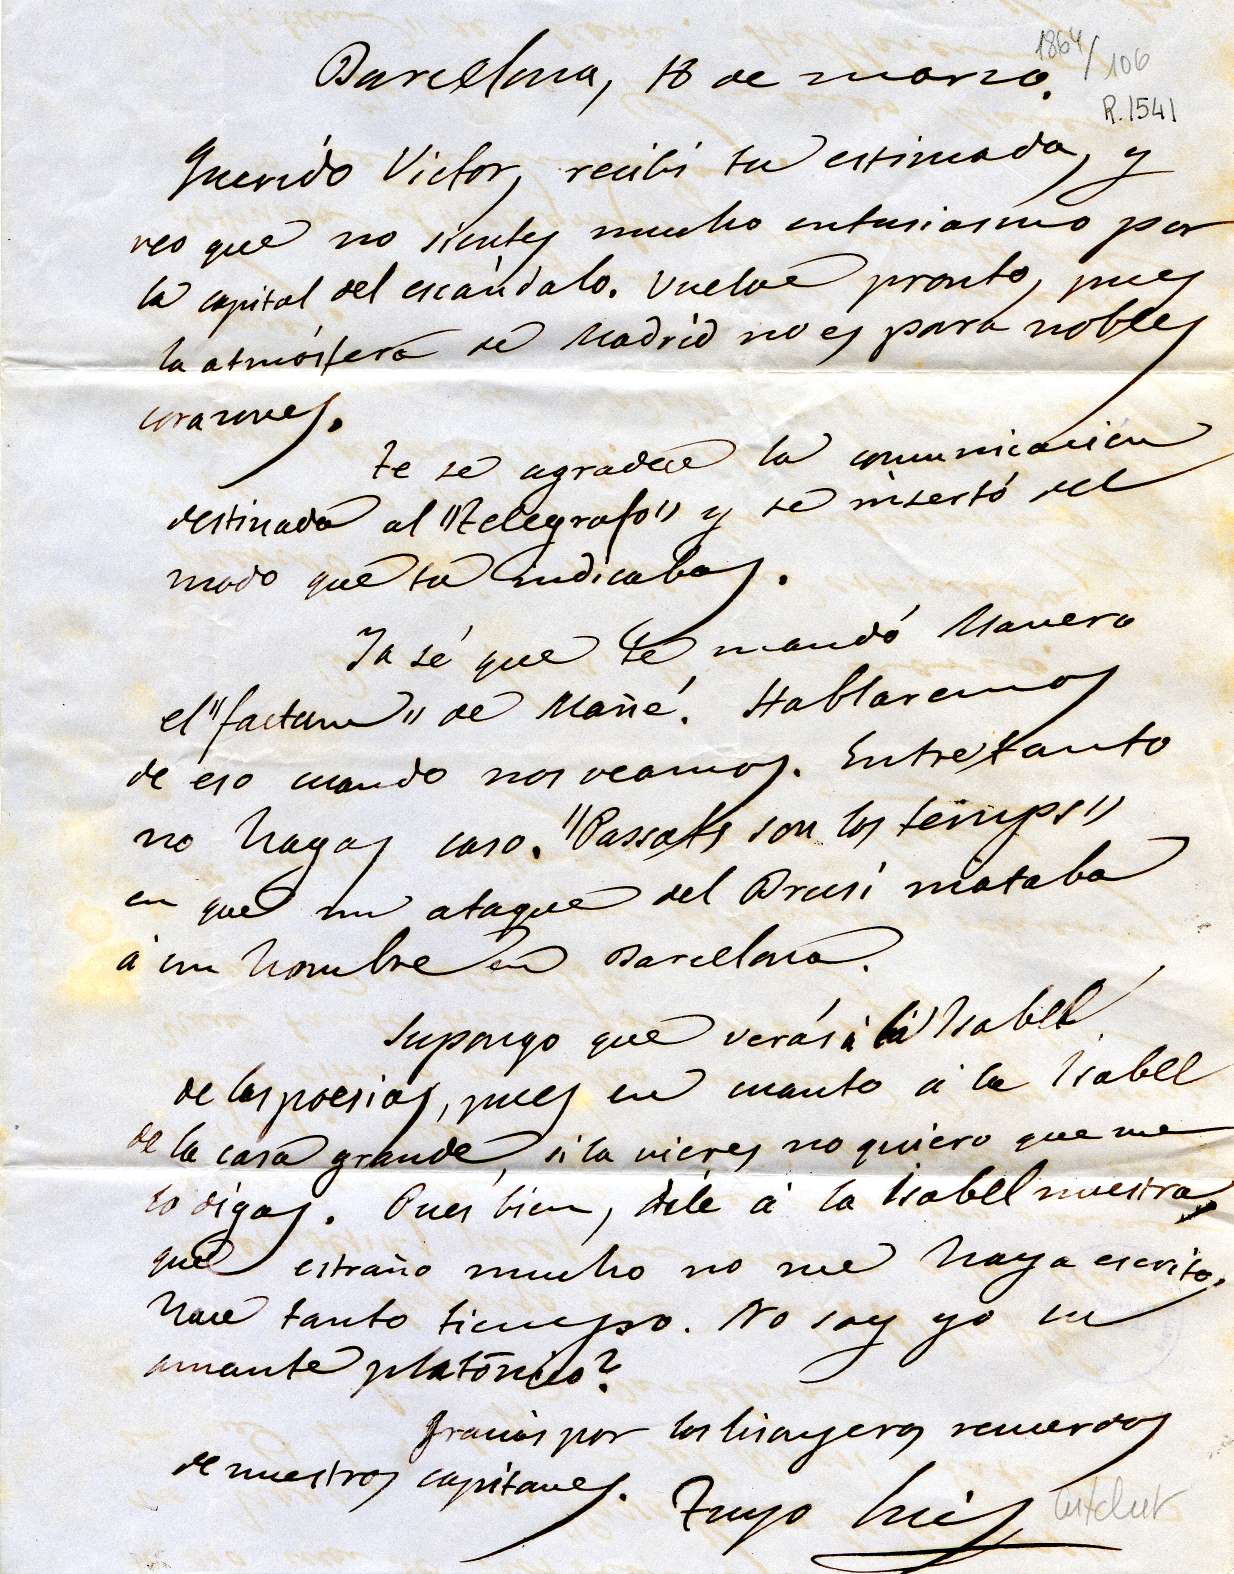 1864/106
R.1541
Barcelona, 18 de marzo.
Querido Victor, recibí tu estimada, y
veo que no sientes mucho entusiasmo por
la capital del escándalo. Vuelve pronto, pues
la atmósfera de Madrid no es para nobles
corazones.
Te se agradece la comunicacion
destinada al "Telegrafo" y se insertó del
modo que tú indicabas.
Ya sé que te mandó Manera
el "factum" de Mañé. Hablaremos
de eso cuando nos veamos. Entretanto
no hagas caso. "Passats son los temps"
en que un ataque del Brusi mataba
á un hombre en Barcelona.
Supongo que verás á la Isabel
de las poesias, pues en cuanto á la Isabel
de la casa grande, si la vieres no quiero que me
lo digas. Pues bien, dile á la Isabel nuestra
que estraño mucho no me haya escrito
hace tanto tiempo. No soy yo su
amante platónico?
Gracias por los lisongeros recuerdos
de nuestros capitanes.
Tuyo Luis Cutchet